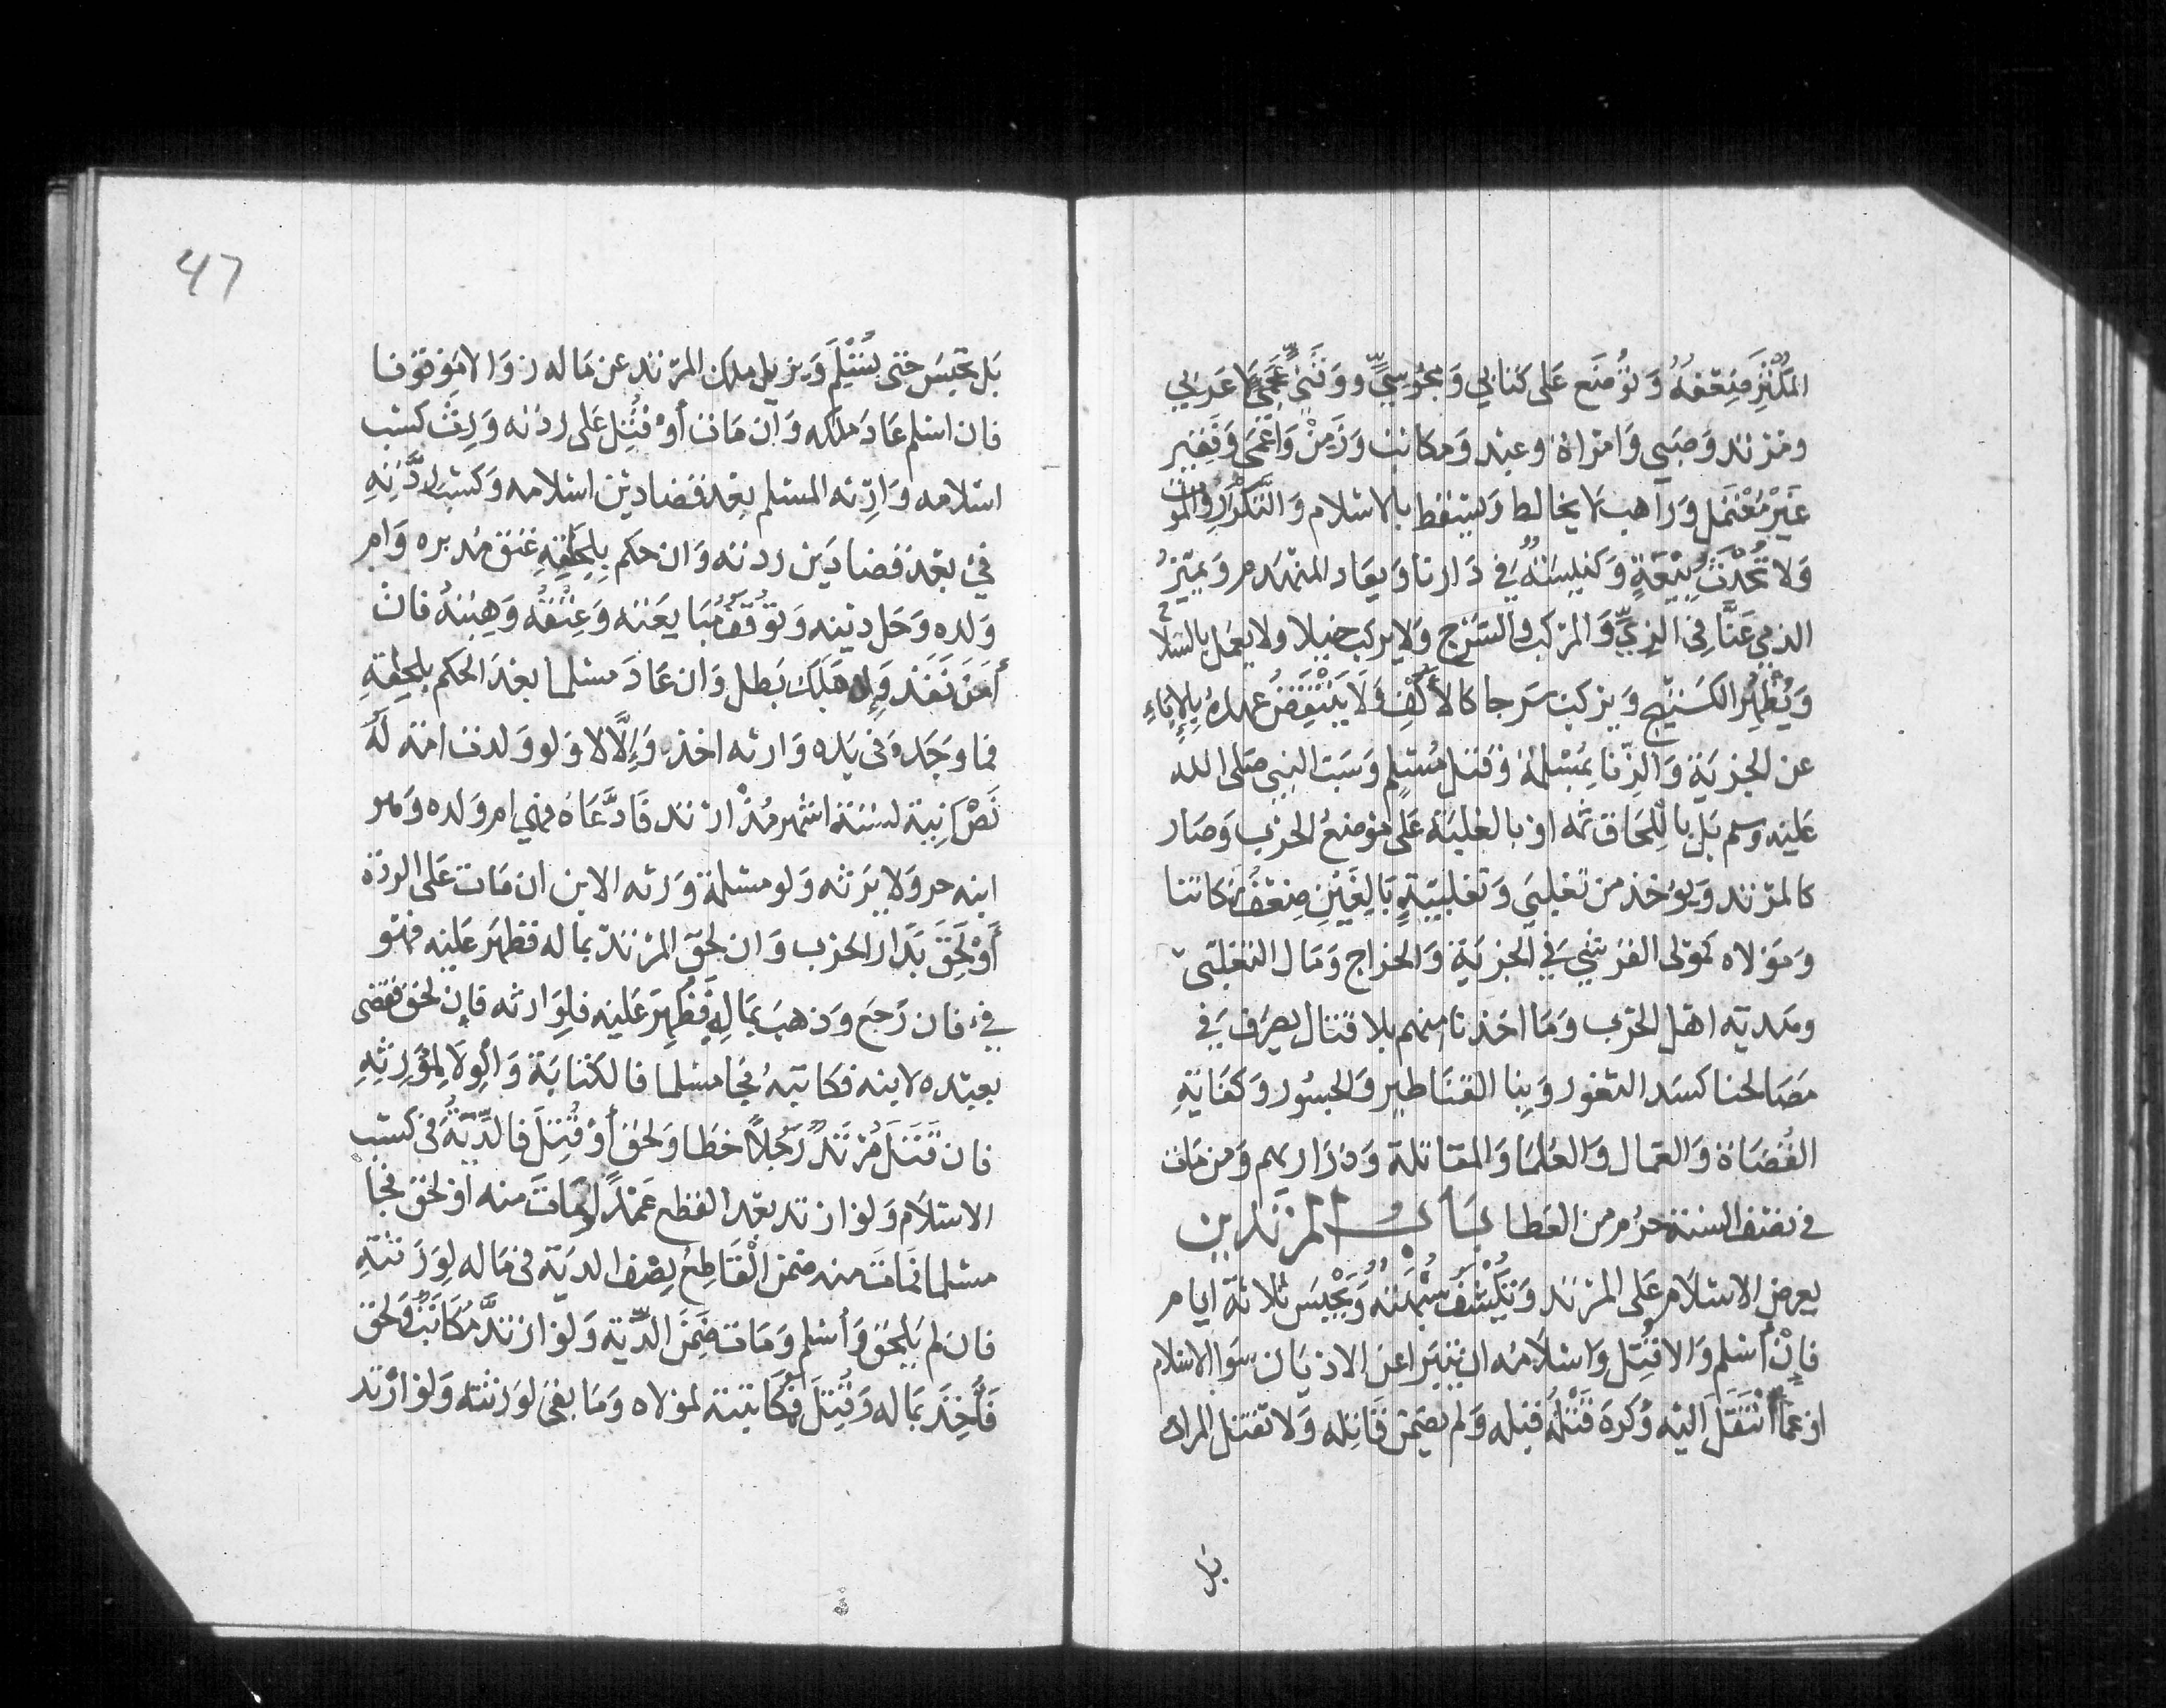 المكثر ضعفه وتوضع على كتابي ومجوسي ووثني عجمي لا عربي
ومرتد وصبي وامراة وعبد ومكاتب وزمن واعمى وفقير
غير معتمل وراهب لا يخالط وتسقط بالاسلام والتكرار والموت
ولا تحدث بيعة وكنيسة في دارنا ويعاد المنهدم ويميز
الذمي عنا في الزي والمركب والسرج ولا يركب خيلا ولا يعمل بالسلاح
ويظهر الكستيج ويركب سرجا كالأكف ولا ينتقض عهده بالإباء
عن الجزية والزنا بمسلمة وقتل مسلم وسب النبي صلى الله
عليه وسلم بل باللحاق ثمه او بالغلبة على موضع الحرب وصار
كالمرتد ويوخذ من تغلبي وتغلبية بالغين ضعف زكاتنا
ومولاه كمولى القرشي في الجزية والخراج ومال التغلبي
وهدية اهل الحرب وما اخذنا منهم بلا قتال يصرف في
مصالحنا كسد الثغور وبنا القناطير والجسور وكفاية
القضاة والعمال والعلما والمقاتلة وذراريهم ومن مات
في نصف السنة حرم من العطا باب المرتدين
يعرض الاسلام على المرتد وتكشف شبهته ويحبس ثلاثة ايام
فإن أسلم والا قتل واسلامه ان يتبرا عن الاديان سوا الاسلام
او عما انتقل اليه وكره قتله قبله ولم يضمن قاتله ولا تقتل المراة
بل
47
بل تحبس حتى تسلم ويزيل ملك المرتد عن ماله زوالا موقوفا
فان اسلم عاد ملكه وان مات أو قتل على ردته ورث كسب
اسلامه وارثه المسلم بعد قضا دين اسلامه وكسب ردته
فيء بعد قضا دين ردته وان حكم بلحاقه عتق مدبره وام
ولده وحل دينه وتوقف مبايعته وعتقه وهبته فان
أمن نفذ وإن هلك بطل وان عاد مسلما بعد الحكم بلحاقه
فما وجده في يده وارثه اخذه وإلا لا ولو ولدت امة له
نصرانية لستة اشهر مذ ارتد فادعاه فهي ام ولده وهو
ابنه حر ولا يرثه ولو مسلمة ورثه الابن ان مات على الردة
أو لحق بدار الحرب وان لحق المرتد بماله فظهر عليه فهو
فيء فان رجع وذهب بماله فظهر عليه فلوارثه فإن لحق فقضى
بعبده لابنه فكاتبه فجا مسلما فالكتابة والولا لمورثه
فان قتل مرتد رجلا خطا ولحق أو قتل فالدية في كسب
الاسلام ولو ارتد بعد القطع عمدا ومات منه او لحق فجا
مسلما فمات منه ضمن القاطع نصف الدية في ماله لورثته
فان لم يلحق وأسلم ومات ضمن الدية ولو ارتد مكاتب ولحق
فأخذ بماله وقتل فمكاتبته لمولاه وما بقى لورثته ولو ارتد